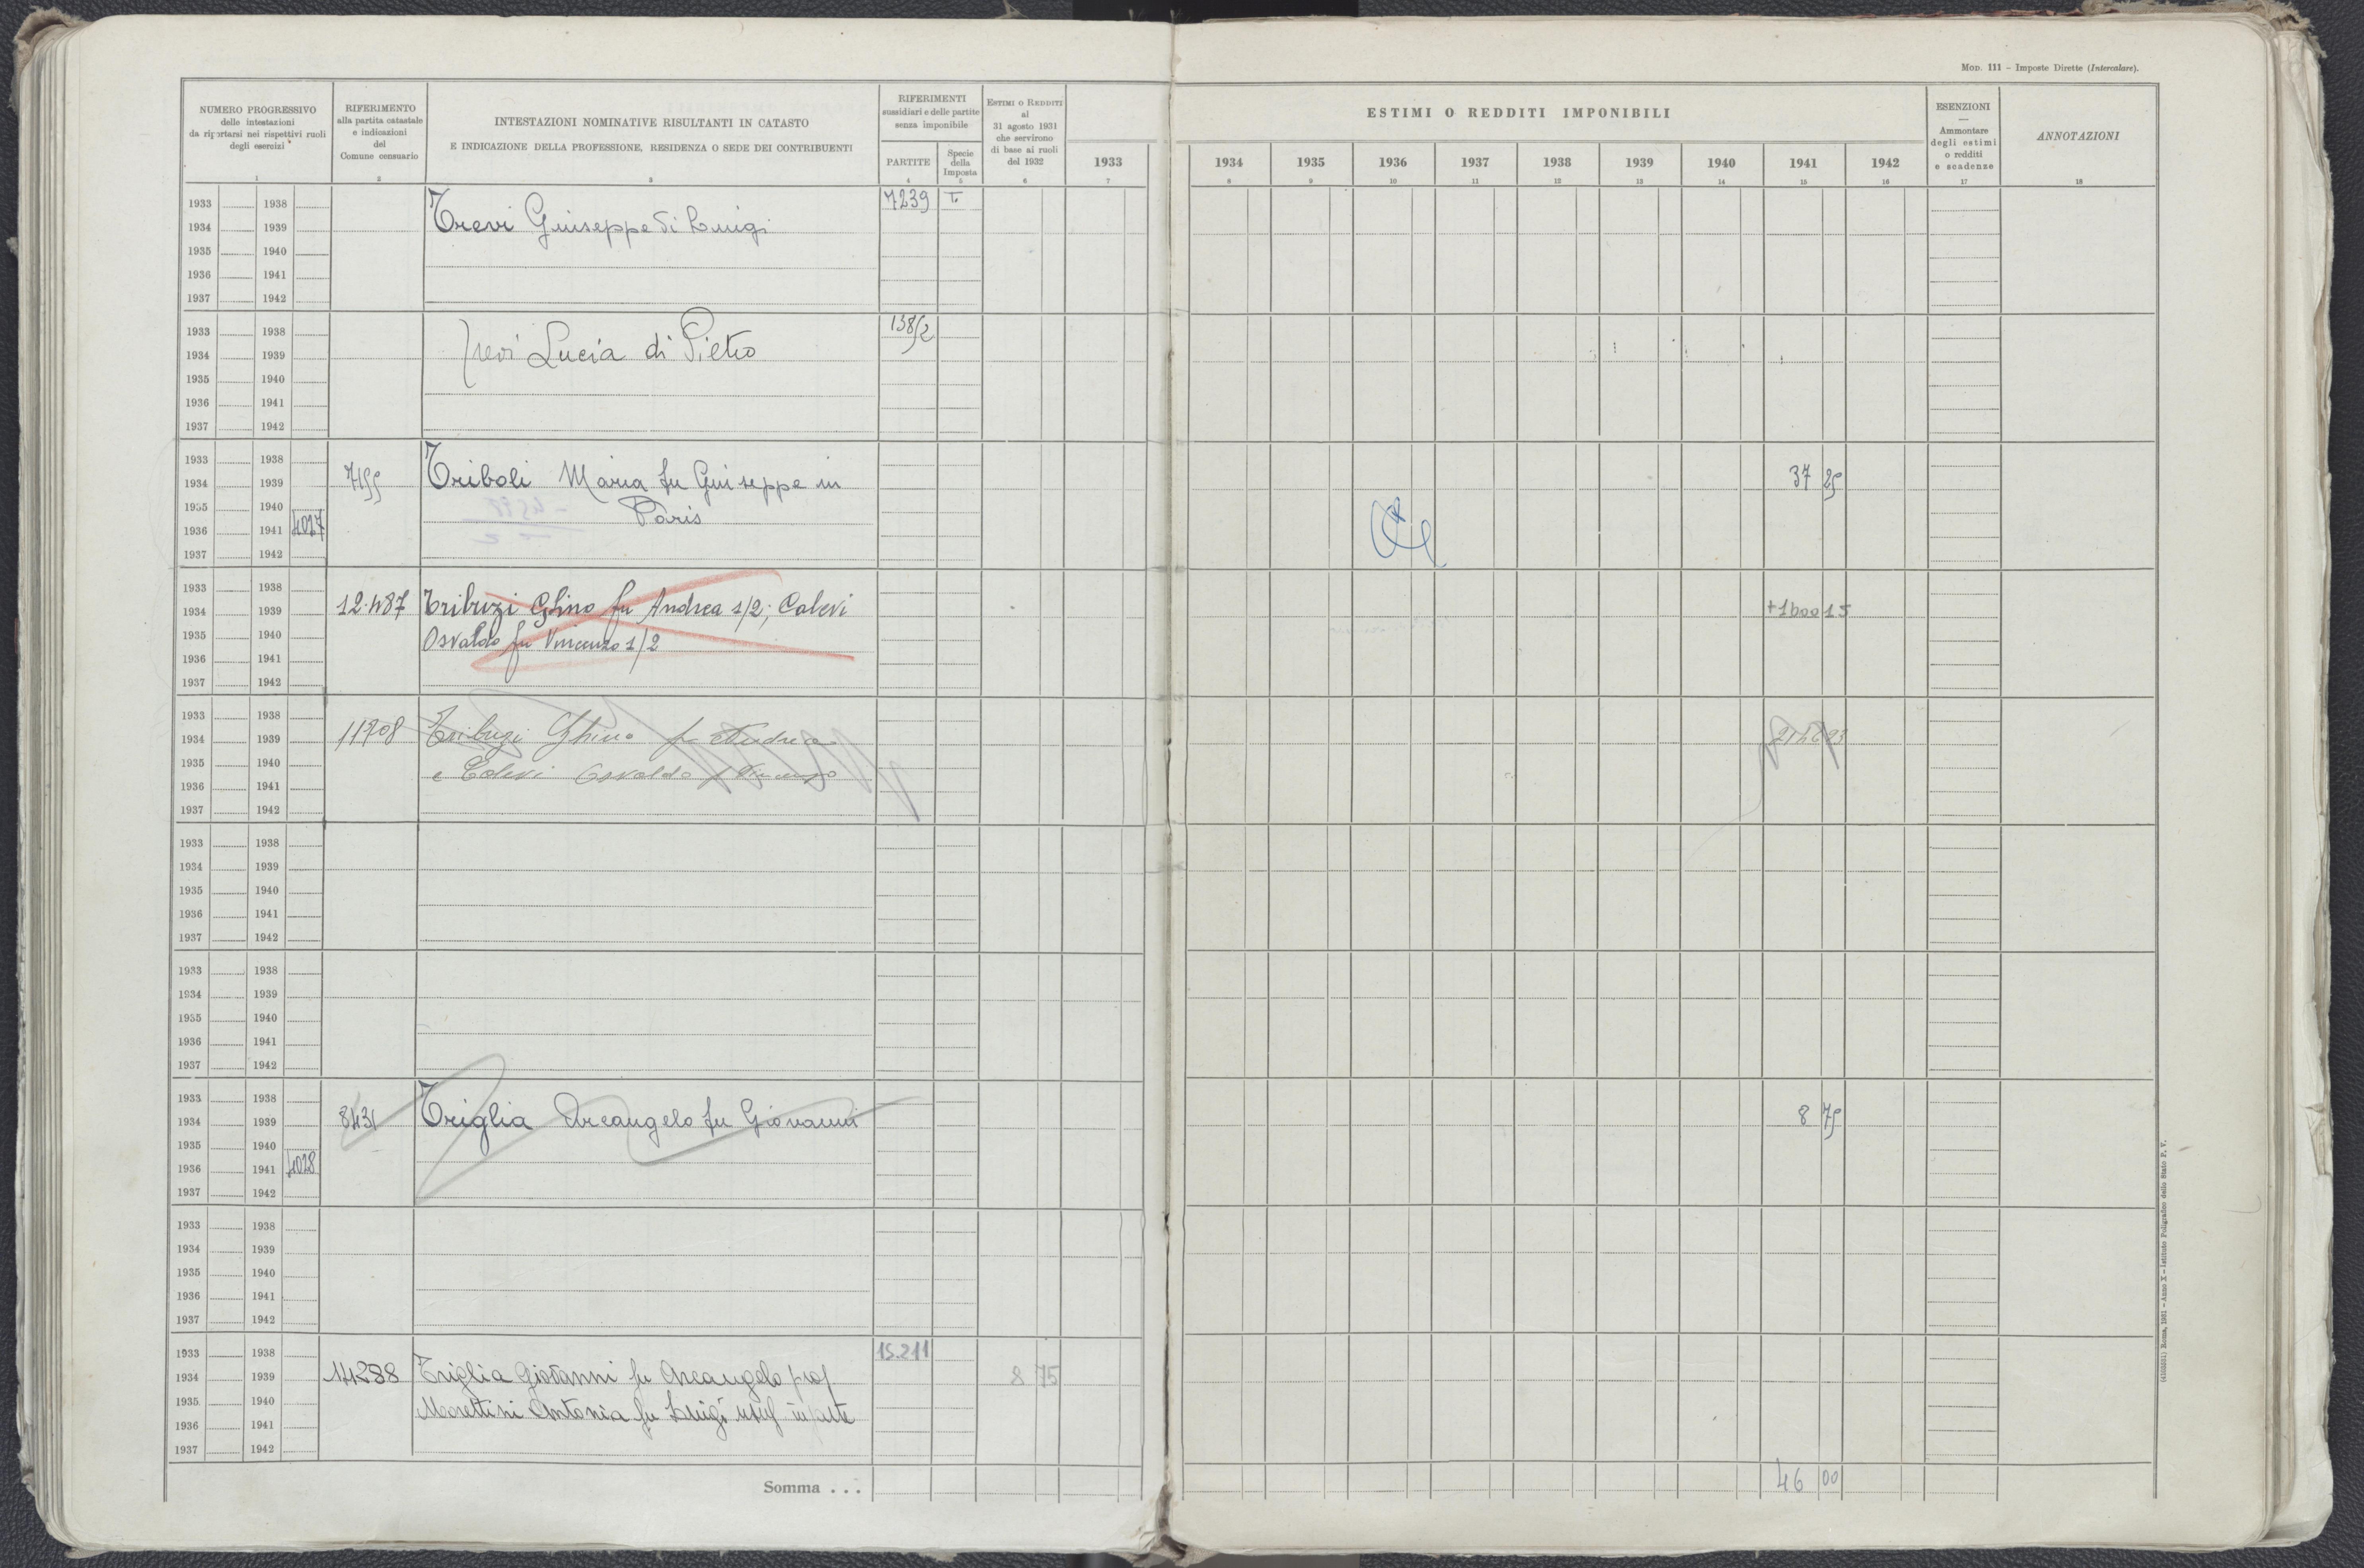 Mod. 111 – Imposte Dirette (Intercalare).
NUMERO PROGRESSIVO
delle intestazioni
da riportarsi nei rispettivi ruoli
degli esercizi
1
RIFERIMENTO
alla partita catastale
e indicazioni
del
Comune censuario
2
INTESTAZIONI NOMINATIVE RISULTANTI IN CATASTO
E INDICAZIONE DELLA PROFESSIONE, RESIDENZA O SEDE DEI CONTRIBUENTI
3
RIFERIMENTI
sussidiari e delle partite
senza imponibile
PARTITE
4
Specie
della
Imposta
5
Estimi o Redditi
al
31 agosto 1931
che servirono
di base ai ruoli
del 1932
6
1933
7
ESTIMI O REDDITI IMPONIBILI
1934 1935 1936 1937 1938 1939 1940 1941 1942
8 9 10 11 12 13 14 15 16
ESENZIONI
Ammontare
degli estimi
o redditi
e scadenze
17
ANNOTAZIONI
18
1933 1938 7239 T.
1934 1939 Trevi Giuseppe di Luigi
1935 1940
1936 1941
1937 1942
1933 1938
1934 1939 Trevi Lucia di Pietro
1935 1940
1936 1941
1937 1942
1933 1938
1934 1939 Triboli Maria fu Giuseppe in 37 25
1935 1940 Paris
1936 1941 4027
1937 1942
1933 1938
1934 1939 12.487 Tribuzi Ghino fu Andrea 1/2; Calevi
1935 1940 Osvaldo fu Vincenzo 1/2
1936 1941
1937 1942
1933 1938
1934 1939 11708 Tribuzi Ghino fu Andrea
1935 1940 e Calevi Osvaldo f Vincenzo
1936 1941
1937 1942
1933 1938
1934 1939
1935 1940
1936 1941
1937 1942
1933 1938
1934 1939
1935 1940
1936 1941
1937 1942
1933 1938
1934 1939 8431 Triglia Arcangelo fu Giovanni 8 75
1935 1940
1936 1941 4028
1937 1942
1933 1938
1934 1939
1935 1940
1936 1941
1937 1942
1933 1938 15.211
1934 1939 Triglia Giovanni fu Arcangelo prop 8 75
1935 1940 Morettini Antonia fu Luigi usuf in parte
1936 1941
1937 1942
Somma . . . 46 00
Roma, 1931 – Anno X – Istituto Poligrafico dello Stato P. V.